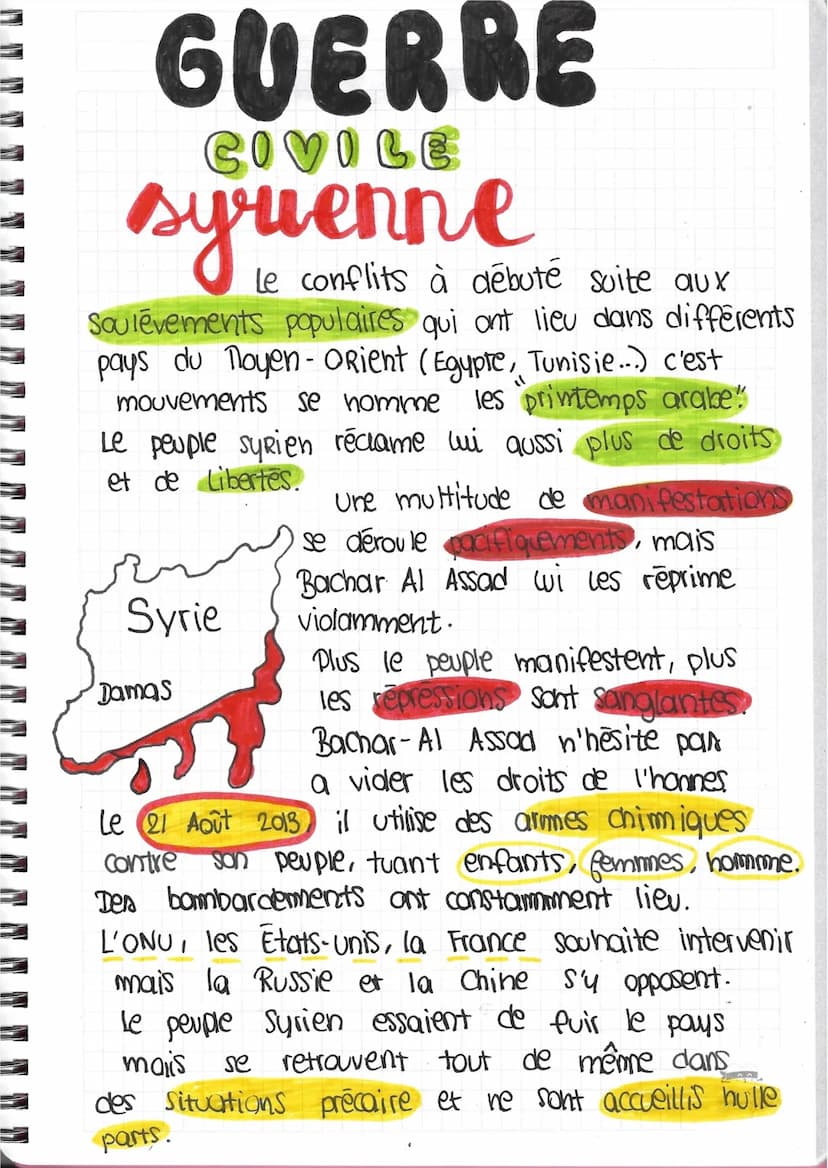 GUERRE
CIVILE
syrienne
Le conflits à débuté suite aux
soulévements populaires qui ont lieu dans différents
pays du Moyen-Orient (Egypte, Tunisie...) c'est
mouvements se nomme les "printemps arabe".
Le peuple syrien réclame lui aussi plus de droits
et de libertés.
Une multitude de manifestations
se déroule pacifiquements, mais
Bachar Al Assad lui les réprime
violamment.
Syrie
Damas
Plus le peuple manifestent, plus
les répressions sont sanglantes.
Bachar-Al Assad n'hésite pas
a violer les droits de l'honnes
Le 21 Août 2013, il utilise des armes chimiques
contre son peuple, tuant enfants, femmes, homme.
Des bombardements ont constammment lieu.
L'ONU, les États-unis, la France souhaite intervenir
mais la Russie et la Chine s'y opposent.
Le peuple Syrien essaient de fuir le pays
mais se retrouvent tout de même dans
des situations précaire et ne sont accueillis nulle
parts.